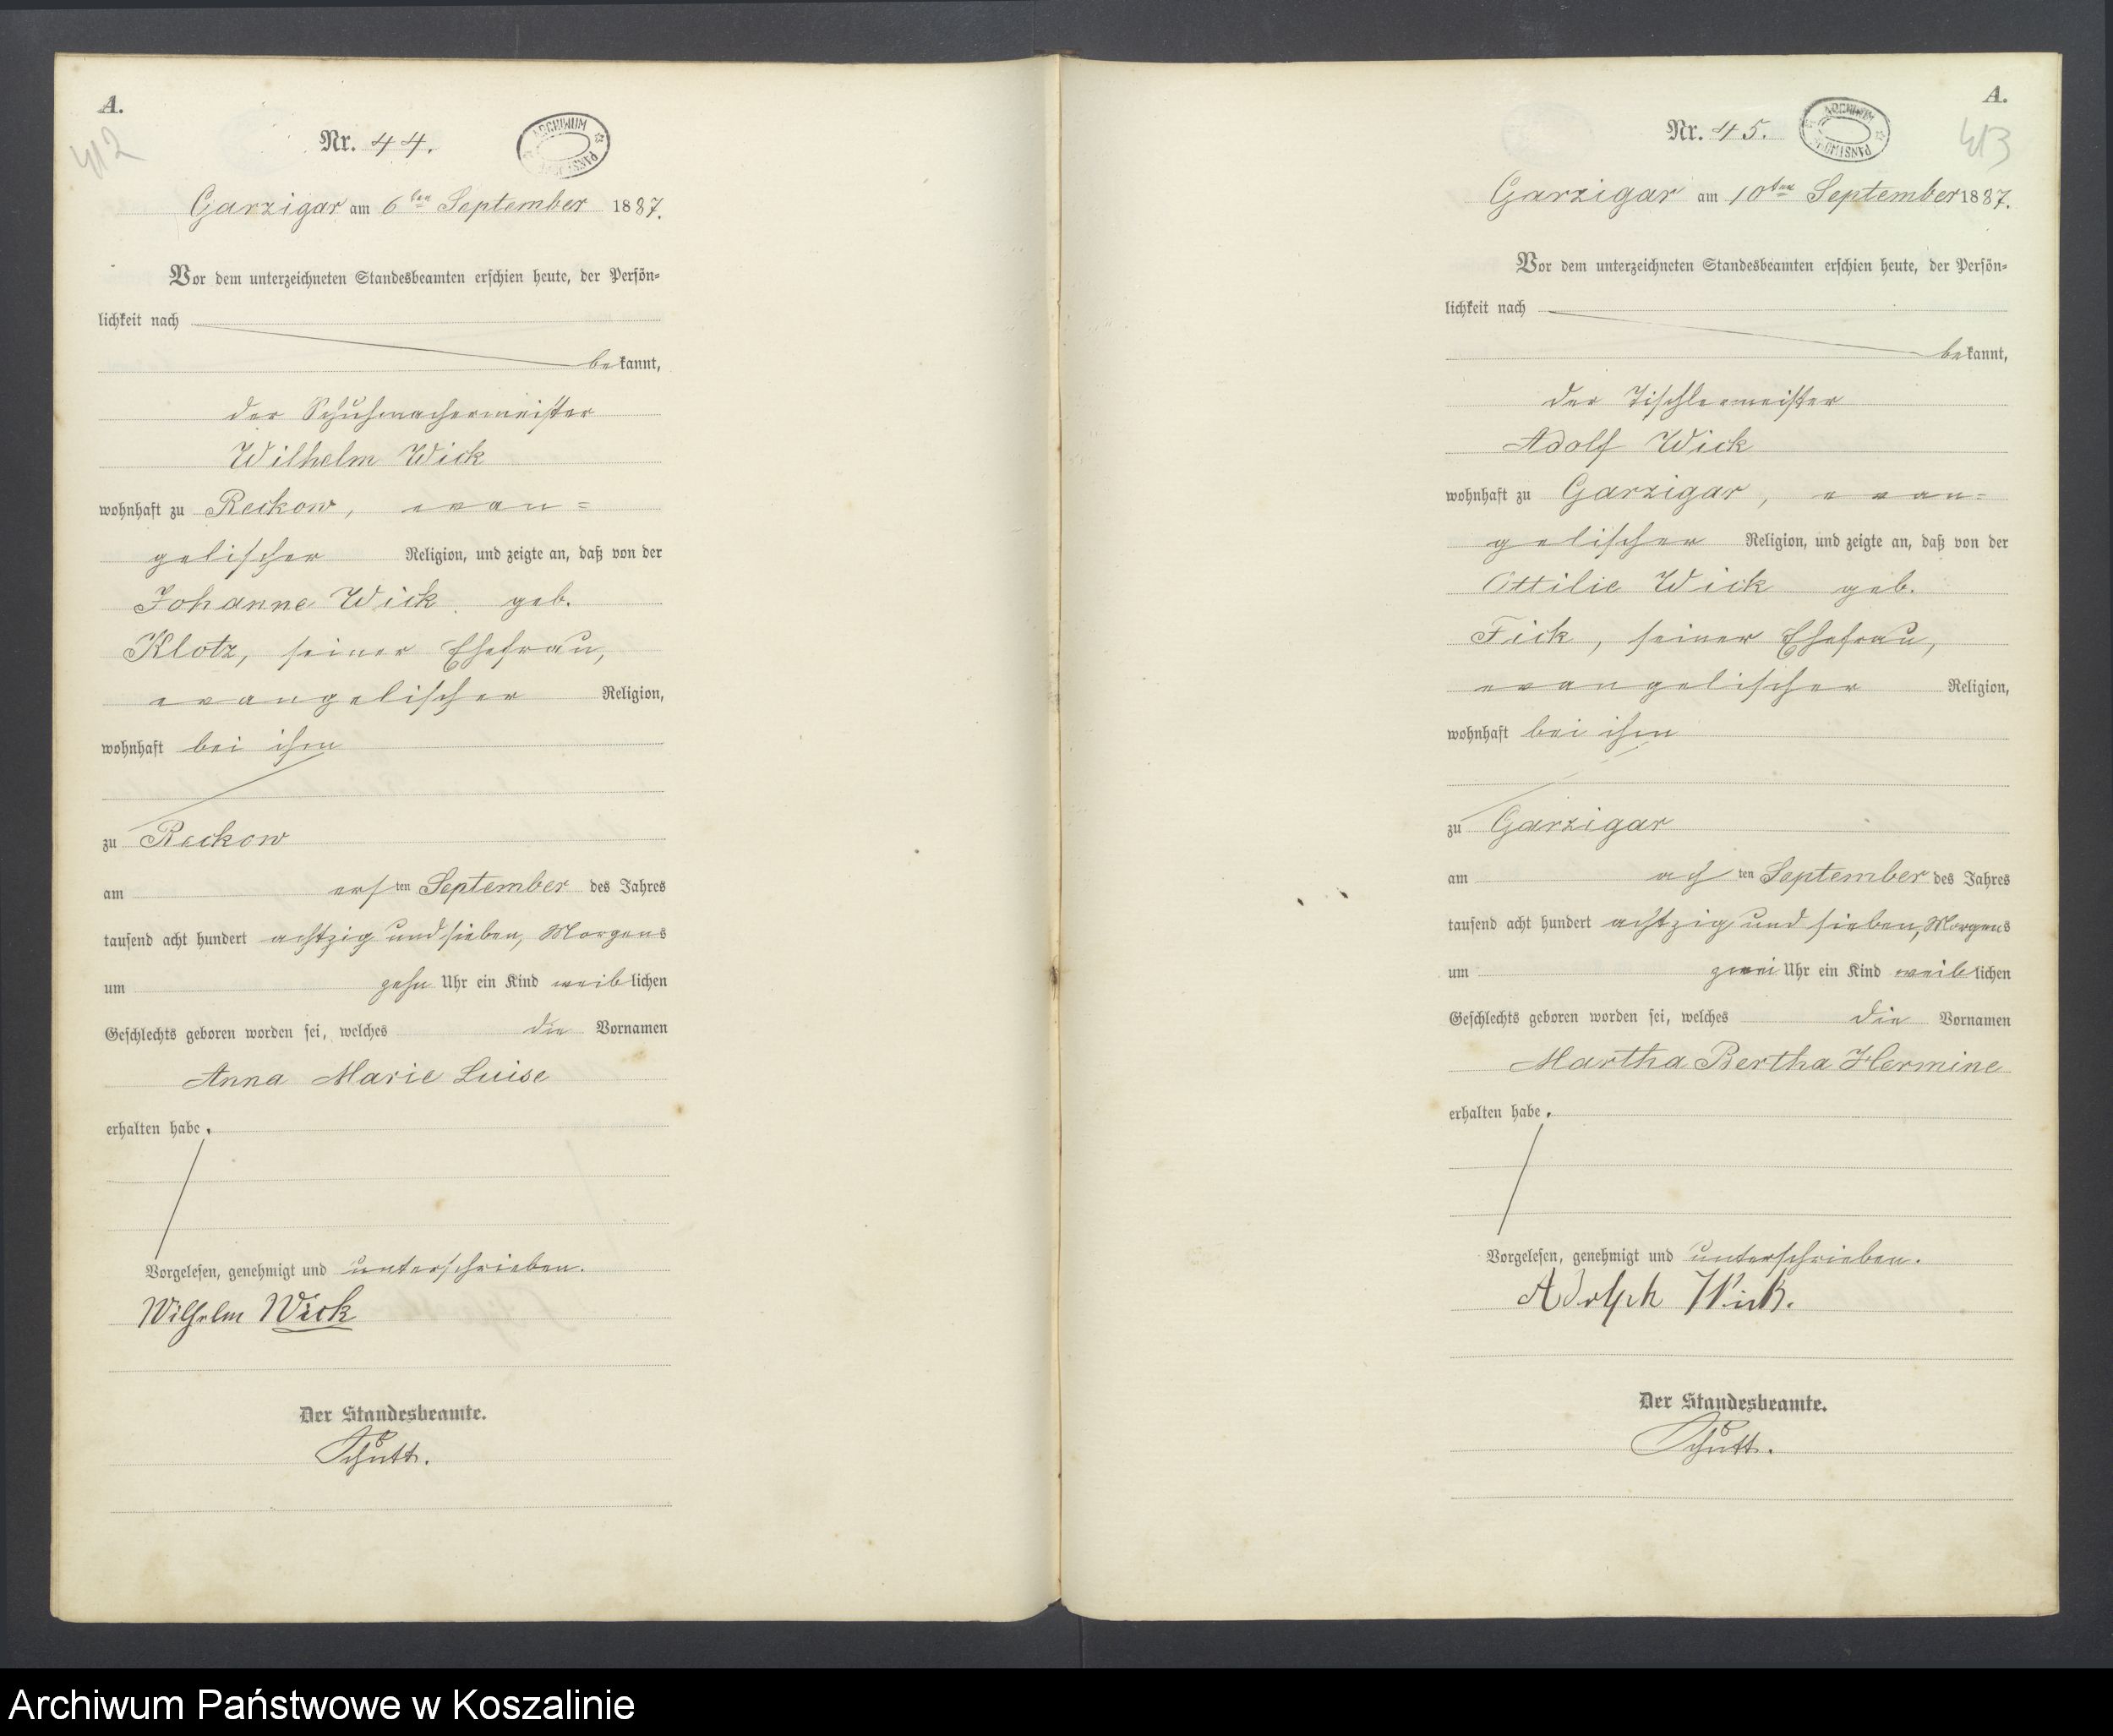 A.
412
Nr. 44.
ARCHIWUM PAŃSTW
Garzigar am 6ten September 1887.
Vor dem unterzeichneten Standesbeamten erschien heute, der Persön-
lichkeit nach
bekannt,
der Schuhmachermeister
Wilhelm Wick
wohnhaft zu Reckow, evan=
gelischer Religion, und zeigte an, daß von der
Johanne Wick geb.
Klotz, seiner Ehefrau,
evangelischer Religion,
wohnhaft bei ihm
zu Reckow
am ersten September des Jahres
tausend acht hundert achtzig und sieben, Morgens
um zehn Uhr ein Kind weiblichen
Geschlechts geboren worden sei, welches die Vornamen
Anna Marie Luise
erhalten habe.
Vorgelesen, genehmigt und unterschrieben.
Wilhelm Wick
Der Standesbeamte.
Schütt.
A.
413
Nr. 45.
ARCHIWUM PAŃSTW
Garzigar am 10ten September 1887.
Vor dem unterzeichneten Standesbeamten erschien heute, der Persön-
lichkeit nach
bekannt,
der Tischlermeister
Adolf Wick
wohnhaft zu Garzigar, evan=
gelischer Religion, und zeigte an, daß von der
Ottilie Wick geb.
Fick, seiner Ehefrau,
evangelischer Religion,
wohnhaft bei ihm
zu Garzigar
am achten September des Jahres
tausend acht hundert achtzig und sieben, Morgens
um zwei Uhr ein Kind weiblichen
Geschlechts geboren worden sei, welches die Vornamen
Martha Bertha Hermine
erhalten habe.
Vorgelesen, genehmigt und unterschrieben.
Adolph Wick.
Der Standesbeamte.
Schütt.
Archiwum Państwowe w Koszalinie